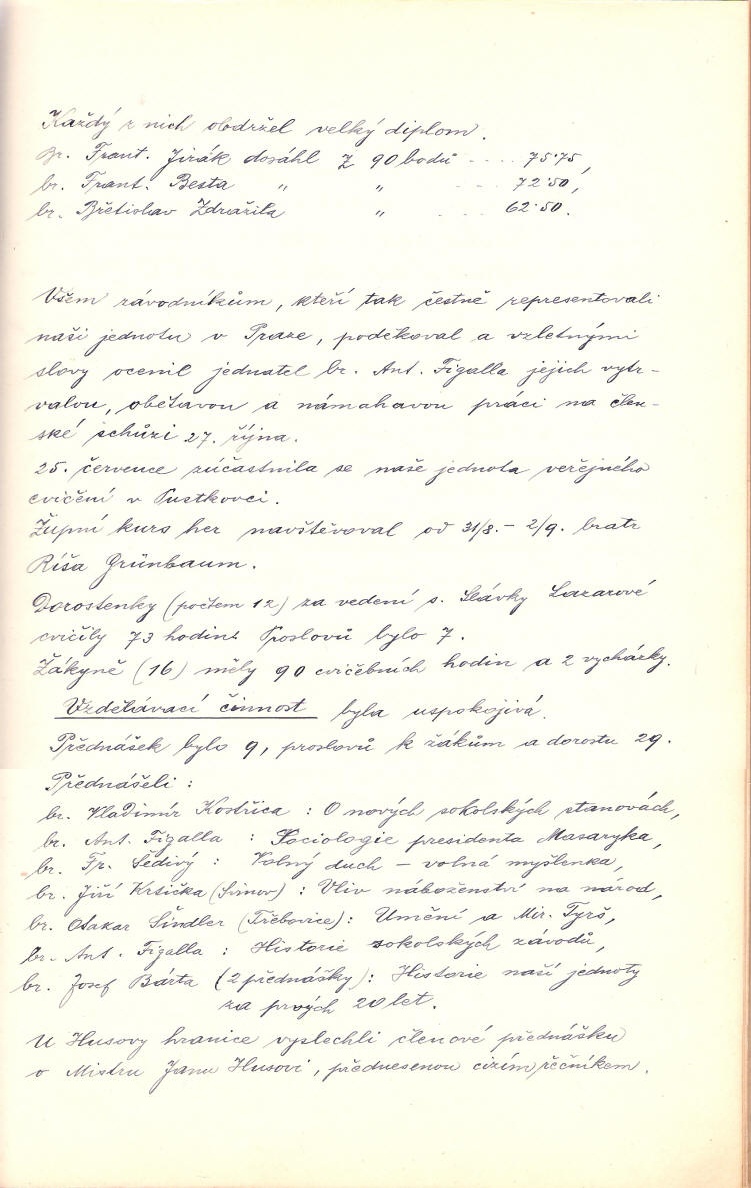 Každý z nich obdržel velký diplom.
br. Frant. Jirák dosáhl z 90 bodů .... 75·75,
br. Frant. Besta " " ... 72·50,
br. Břetislav Zdražila " ... 62·50.
Všem závodníkům, kteří tak čestně representovali
naši jednotu v Praze, poděkoval a vzletnými
slovy ocenil jednatel br. Ant. Figalla jejich vytr-
valou, obětavou a námahavou práci na člen-
ské schůzi 27. října.
25. července zúčastnila se naše jednota veřejného
cvičení v Pustkovci.
Župní kurs her navštěvoval od 31/8. – 2/9. bratr
Ríša Grünbaum.
Dorostenky (počtem 12) za vedení s. Slávky Lazarové
cvičily 73 hodin. Proslovů bylo 7.
Žákyně (16) měly 90 cvičebních hodin a 2 vycházky.
Vzdělávací činnost byla uspokojivá.
Přednášek bylo 9, proslovů k žákům a dorostu 29.
Přednášeli:
br. Vladimír Kostřica : O nových sokolských stanovách,
br. Ant. Figalla : Sociologie presidenta Masaryka,
br. Fr. Šedivý : Volný duch – volná myšlenka,
br. Jiří Krsička (Svinov) : Vliv náboženství na národ,
br. Otakar Šindler (Třebovice) : Umění a Mir. Tyrš,
br. Ant. Figalla : Historie sokolských závodů,
br. Josef Bárta (2 přednášky) : Historie naší jednoty
za prvých 20 let.
U Husovy hranice vyslechli členové přednášku
o Mistru Janu Husovi, přednesenou cizím řečníkem.